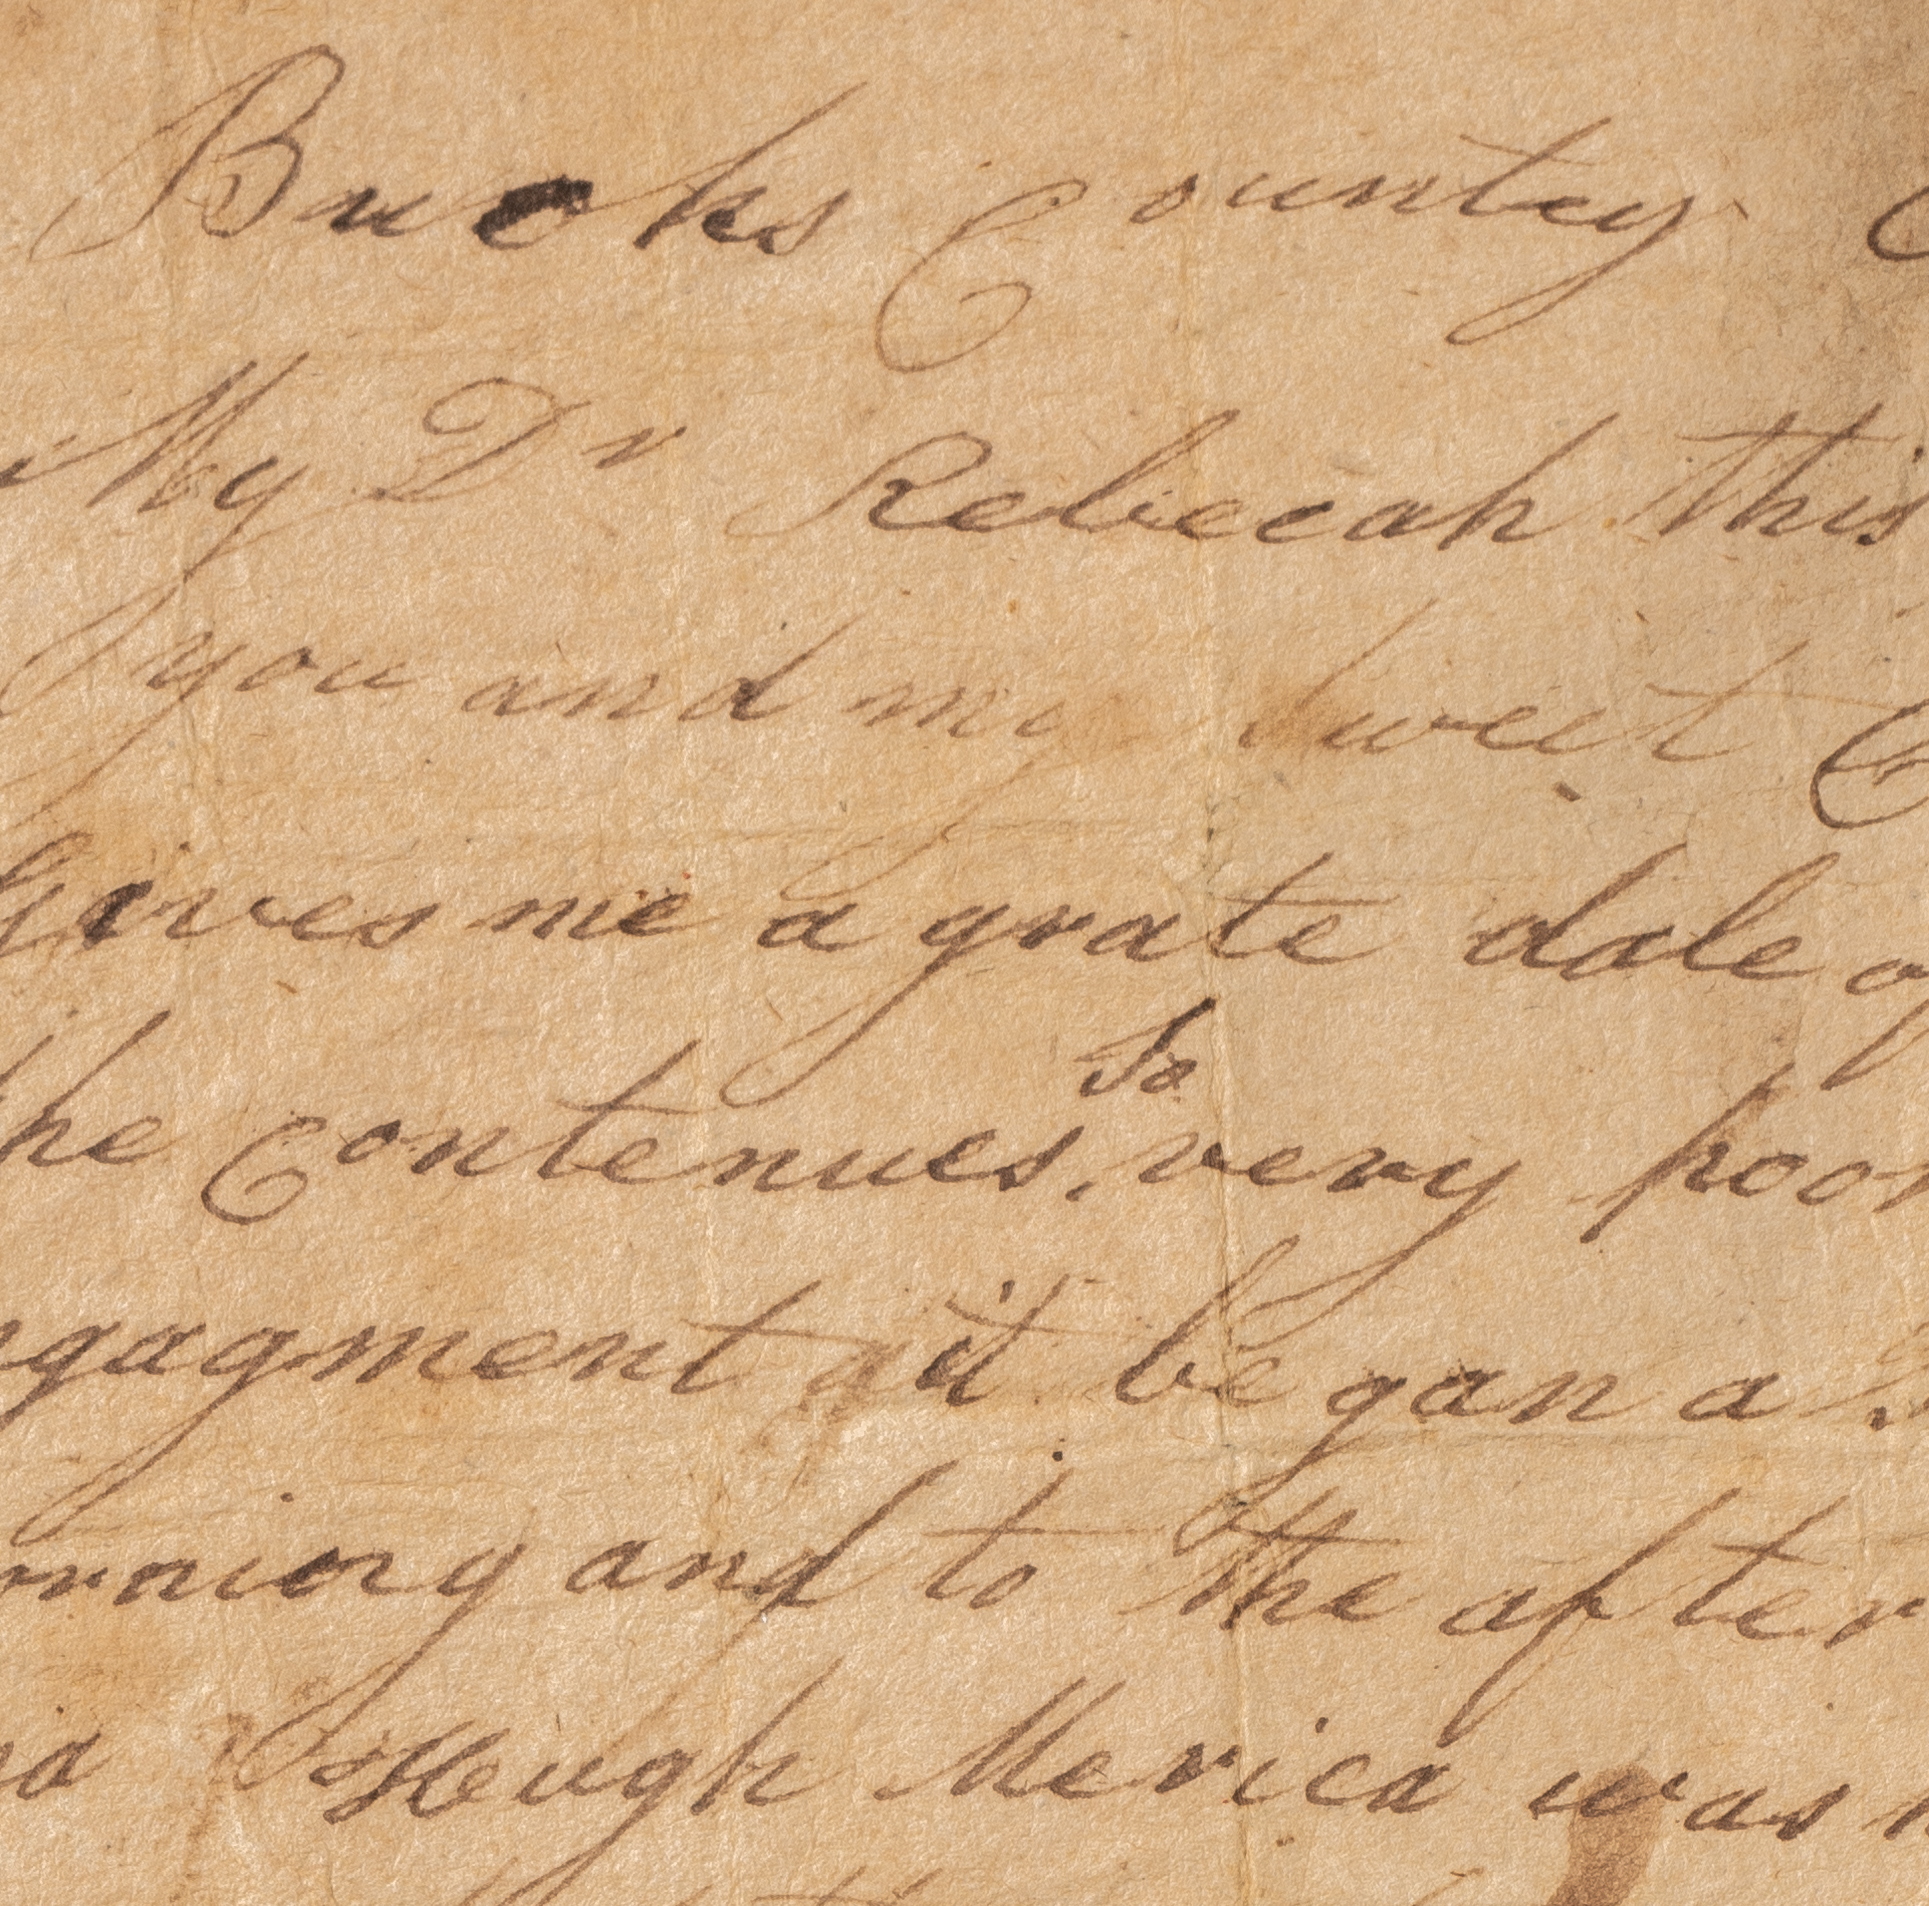 Bucks County
My Dr Rebecah this
you and my Sweet
Gives me a grate dale of
he Contenues, so very poor
ngagment it began a
orning and to the after
Hugh Merica was